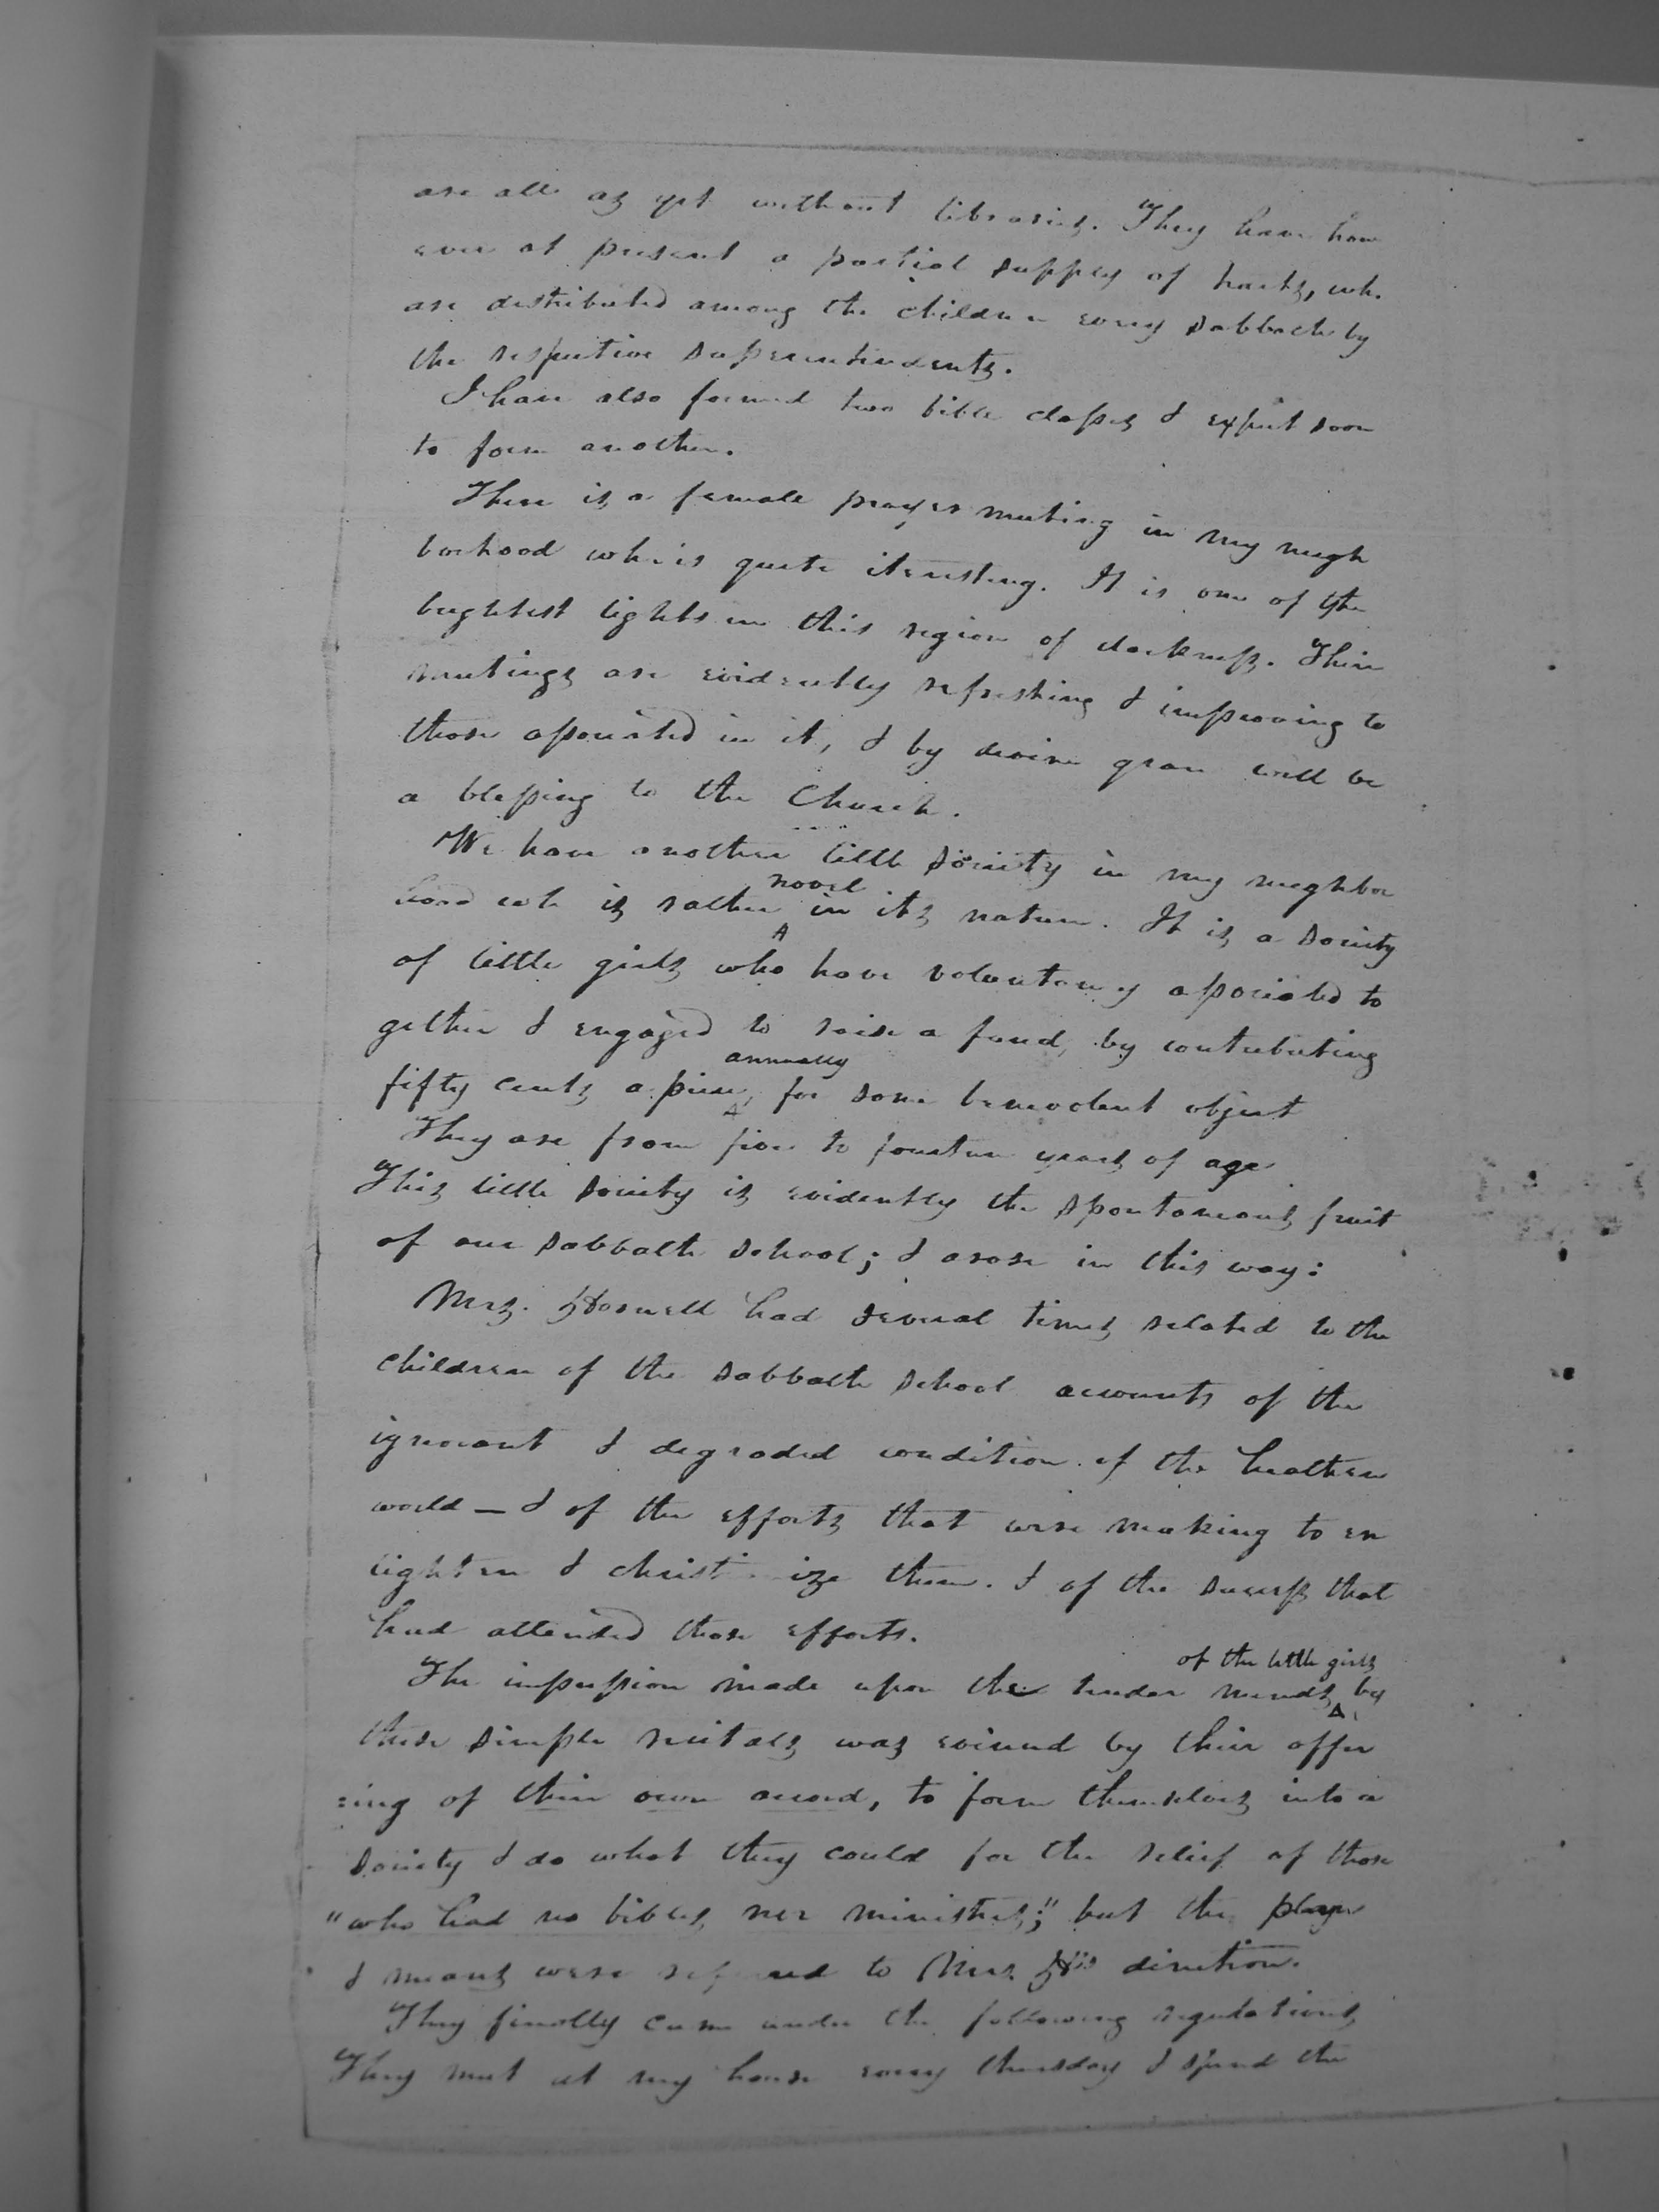 are all as yet without libraries. They have how
ever at present a partial supply of tracts, wh.
are distributed among the children every sabbath by
the respective superintendents.
I have also formed two bible classes & expect soon
to form another.
There is a female prayer meeting in my neigh
borhood wh. is quite iteresting. It is one of the
brightest lights in this region of darkness. Their
meetings are evidently refreshing & improving to
those associated in it, & by devine grace will be
a blessing to the Church.
We have another little society in my neighbor
hood wh is rather novel in its nature. It is a society
of little girls who have voluntary associated to
gether & engaged to raise a fund, by contributing
fifty cents a piece, annually for some benevolent object
They are from five to fourteen years of age
This little society is evidently the spontaneous fruit
of our sabbath school; & arose in this way:
Mrs. had several times related to the
children of the sabbath school accounts of the
ignorant & degraded condition of the heathen
world — & of the efforts that were making to en
lighten & christ ize them. & of the success that
had attended those efforts.
The impression made upon the tender minds of the little girls by
these simple recitals was evinced by their offer
:ing of their own accord, to form themselves into a
society & do what they could for the relief of those
"who had no bibles, nor ministers;" but the plan
& means were referred to Mrs. H's direction.
They finally came under the following regulations
They meet at my house every thursday & spend the